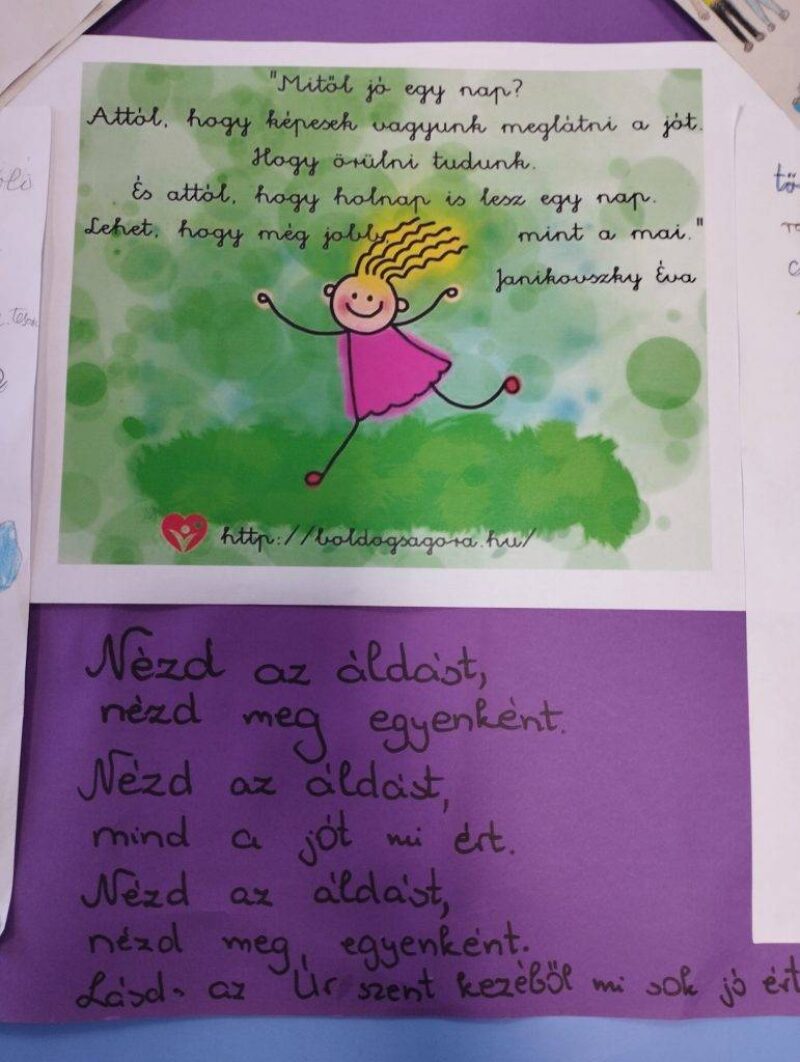 "Mitől jó egy nap?
Attól, hogy képesek vagyunk meglátni a jót.
Hogy örülni tudunk.
És attól, hogy holnap is lesz egy nap.
Lehet, hogy még jobb, mint a mai."
Janikovszky Éva
http://boldogsagora.hu/
Nézd az áldást,
nézd meg egyenként.
Nézd az áldást,
mind a jót mi ért.
Nézd az áldást,
nézd meg, egyenként.
Lásd az Úr szent kezéből mi sok jó ért